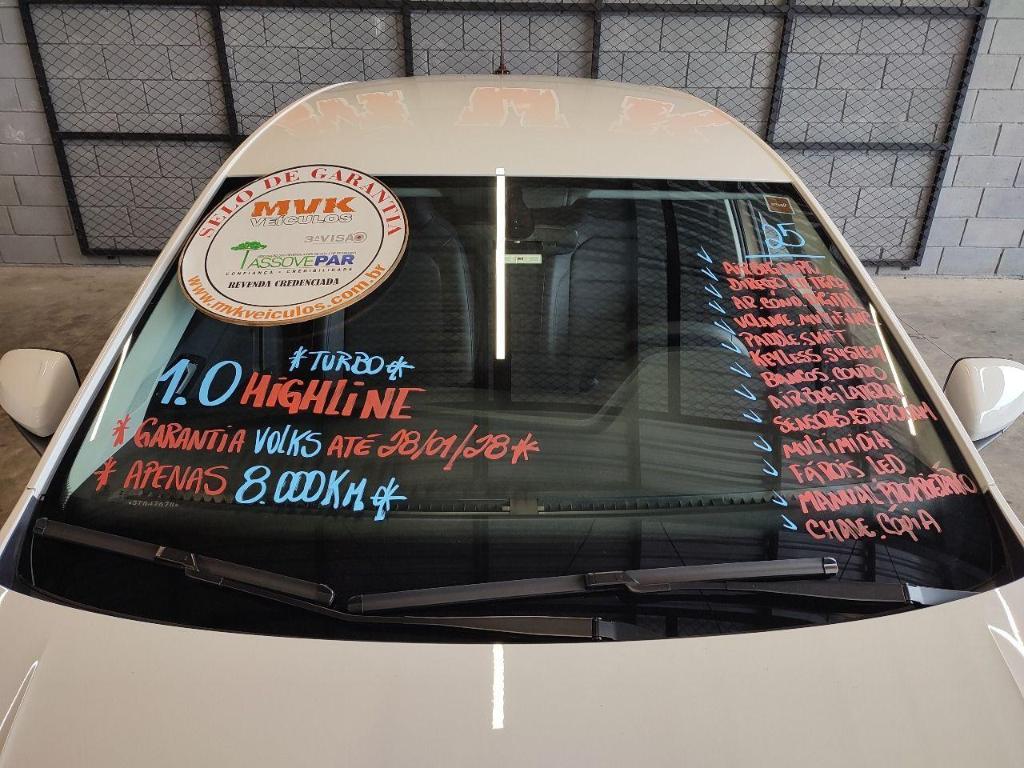 SELO DE GARANTIA
MVK
VEÍCULOS
3ªVISÃO
ASSOVEPAR
CONFIANÇA + CREDIBILIDADE
REVENDA CREDENCIADA
www.mvkveiculos.com.br
* TURBO *
1.0 HIGHLINE
* GARANTIA VOLKS ATÉ 28/01/28 *
* APENAS 8.000KM *
25
DIREÇÃO ELÉTRICA
AR COND DIGITAL
VOLANTE MULTIF
PADDLE SHIFT
KEYLESS SYSTEM
BANCOS COURO
AIRBAG LATERAL
SENSORES ESTAC
MULTIMIDIA
FÁROIS LED
MANUAL PROPRIETÁRIO
CHAVE CÓPIA